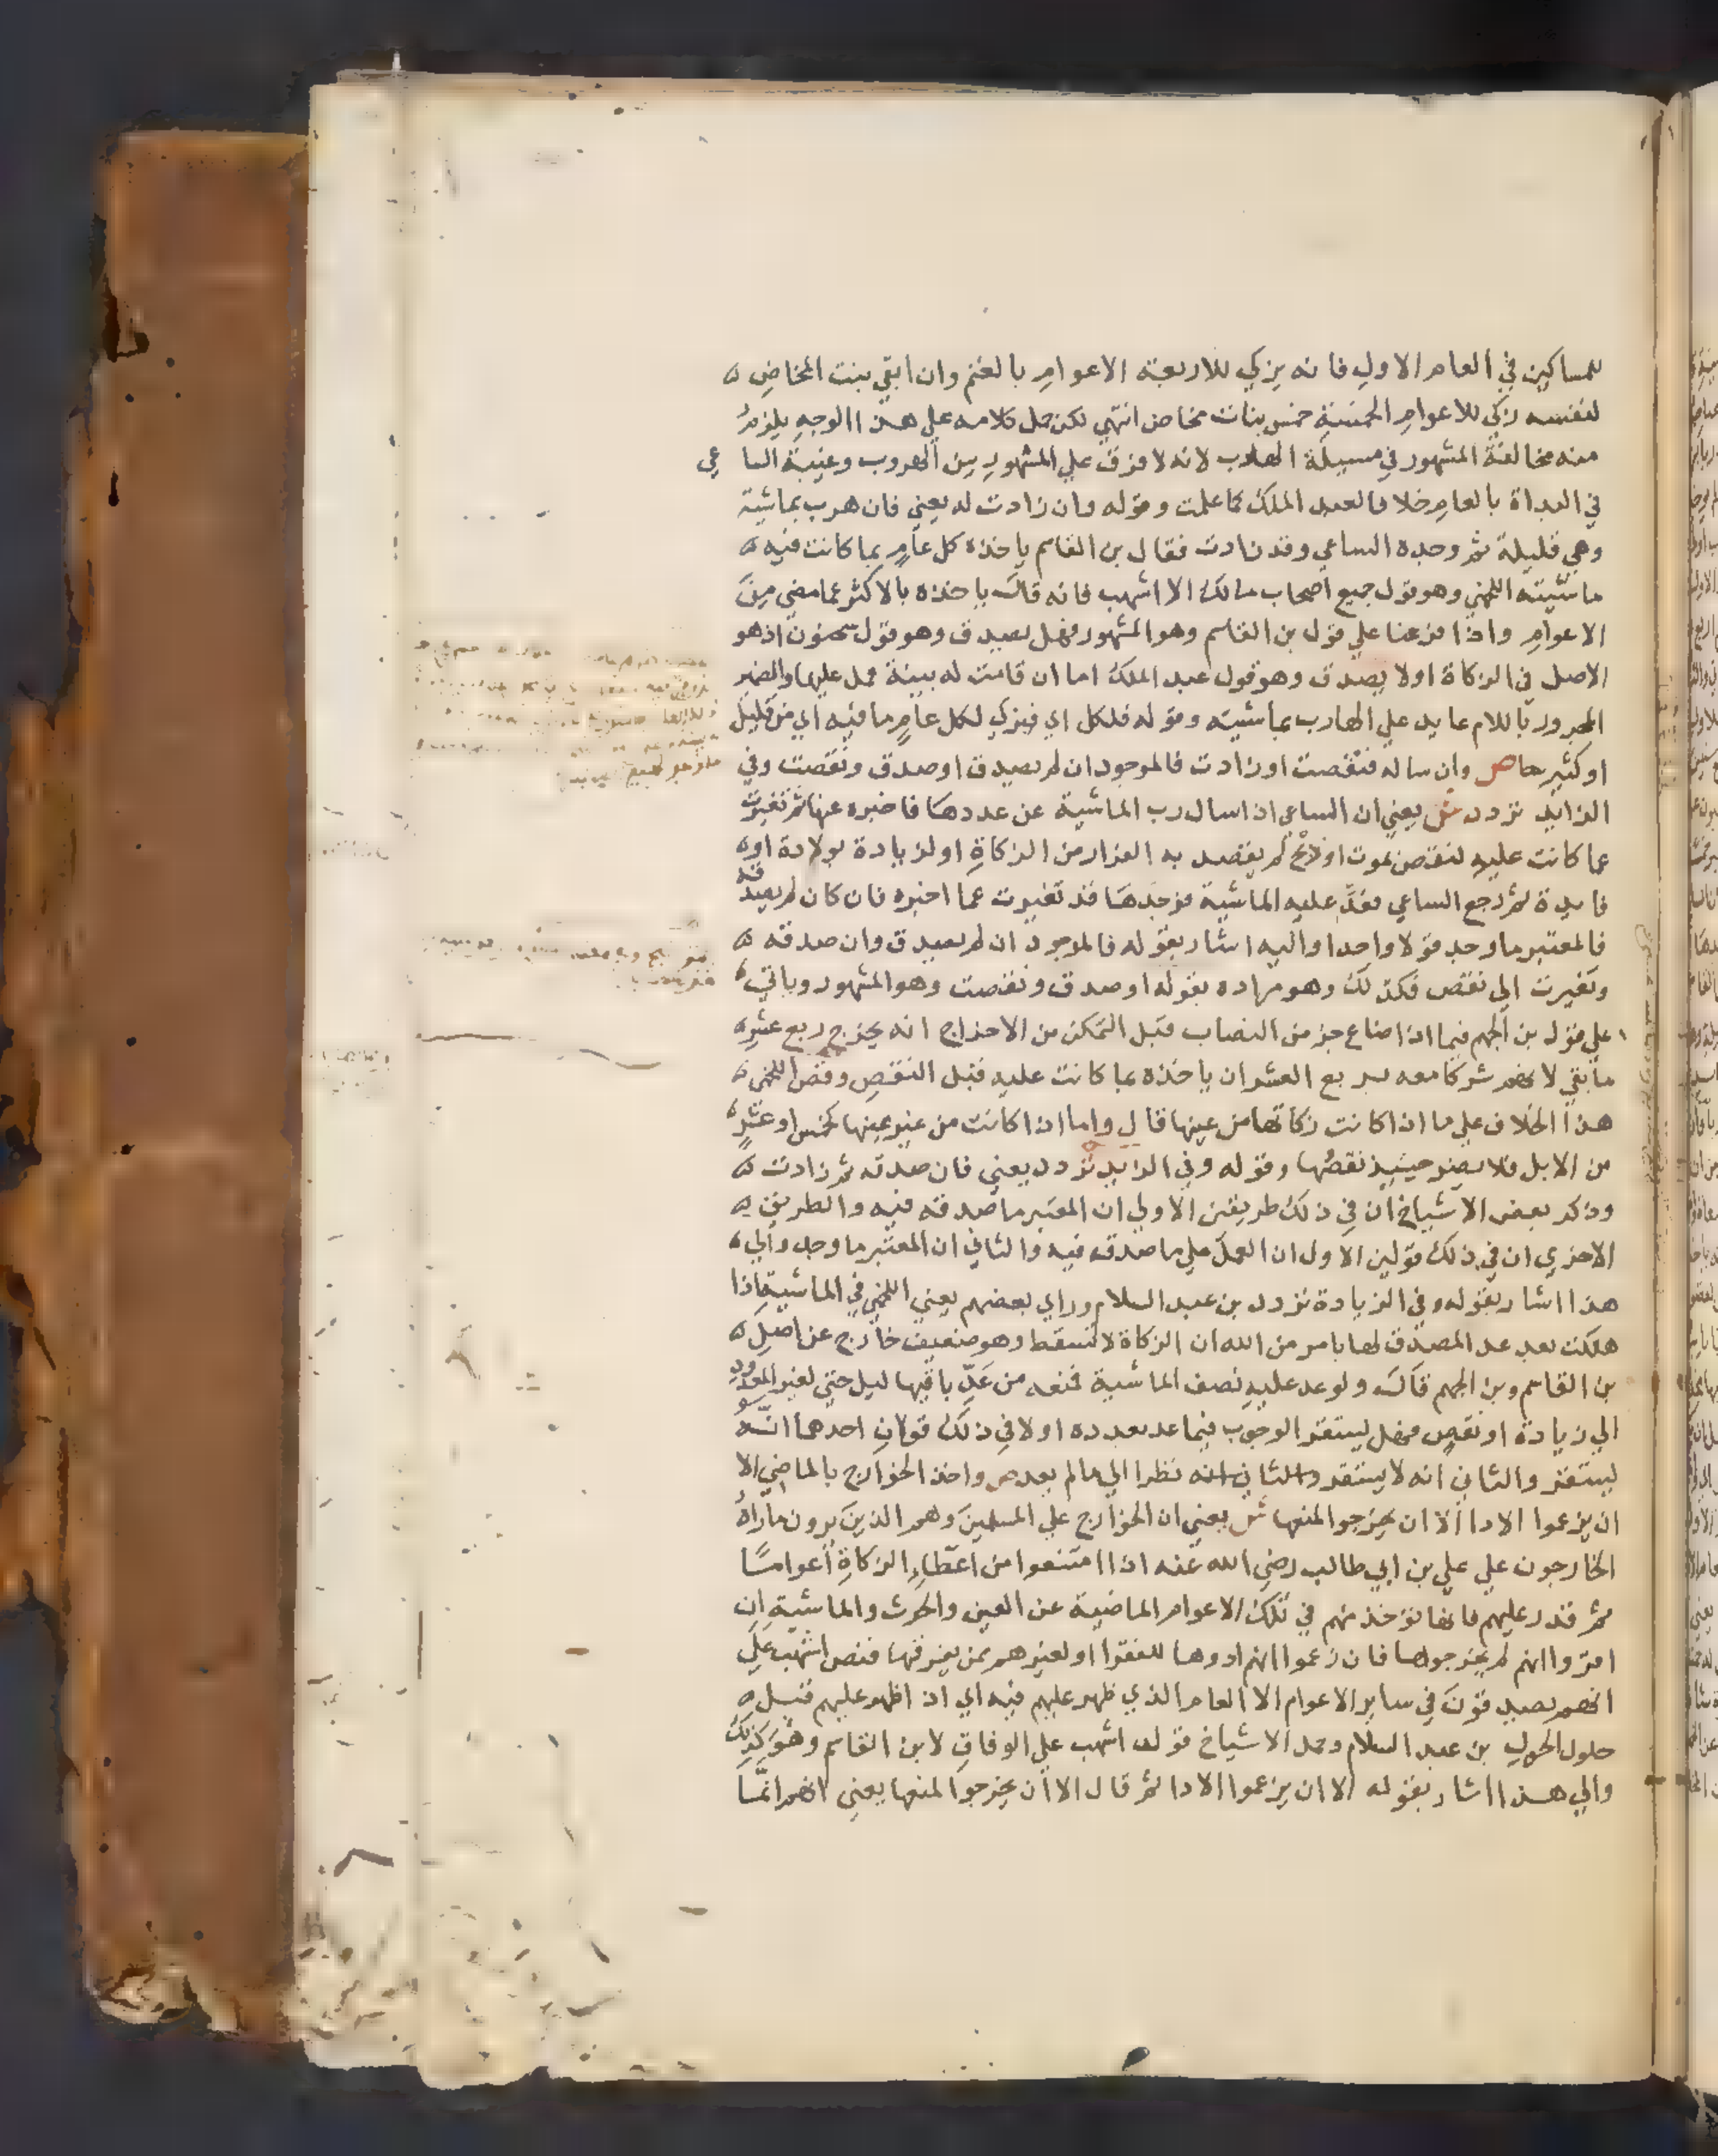 للمساكين في العام الاول فانه يزكي للاربعة الاعوام بالغنم وان ابقي بنت المخاض
لنفسه زكي للاعوام الخمسة خمس بنات مخاض انتهي لكن حمل كلامه علي هذا الوجه يلزم
منه مخالفة المشهور في مسيلة الهارب لانه لا فرق علي المشهور بين الهروب وغيبة السا عي
في البداة بالعام خلافا لعبد الملك كما علمت وقوله وان زادت له يعني فان هرب بماشية
وهي قليلة ثم وجده الساعي وقد زادت فقال بن القاسم ياخذه كل عام بما كانت فيه
ماشيته اللخمي وهو قول جميع اصحاب مالك الا اشهب فانه قال ياخذه بالاكثر عما مضي من
الاعوام واذا فرعنا علي قول بن القاسم وهو المشهور فهل يصدق وهو قول سحنون اذ هو
الاصل في الزكاة او لا يصدق وهو قول عبد الملك اما ان قامت له بينة عمل عليها والضمير
المجرور باللام عايد علي الهارب بماشيته وقوله فلكل اي فيزكي لكل عام ما فيه اي من قليل
او كثير ص وان ساله فنقصت او زادت فالموجود ان لم يصدق او صدق ونقصت وفي
الزايد تردد ش يعني ان الساعي اذا سال رب الماشية عن عددها فاخبره عنها ثم تغيرت
عما كانت عليه لنقص بموت او ذبح لم يقصد به الفرار من الزكاة او لزيادة بولادة او
فايدة ثم رجع الساعي فعد عليه الماشية فوجدها قد تغيرت عما اخبره فان كان لم يصدقه
فالمعتبر ما وجد قولا واحدا واليه اشار بقوله فالموجود ان لم يصدق وان صدقه
وتغيرت الي نقص فكذلك وهو مراده بقوله او صدق ونقصت وهو المشهور وياتي
علي قول بن الجهم فيما اذا ضاع جز من النصاب قبل التمكن من الاخراج انه يخرج ربع عشر
ما بقي لانهم شركا معه بربع العشر ان ياخذه بما كانت عليه قبل النقص وقص اللخمي
هذا الخلاف علي ما اذا كانت زكاتها من عينها قال واما اذا كانت من غير عينها كخمس او عشر
من الابل فلا يضر حينيذ نقصها وقوله وفي الزايد تردد يعني فان صدقه ثم زادت
وذكر بعض الاشياخ ان في ذلك طريقين الاولي ان المعتبر ما صدقه فيه والطريق
الاخري ان في ذلك قولين الاول ان العمل علي ما صدقه فيه والثاني ان المعتبر ما وجد والي
هذا اشار بقوله وفي الزيادة تردد بن عبد السلام وراي بعضهم يعني اللخمي في الماشية اذا
هلكت بعد عد المصدق لها بامر من الله ان الزكاة لا تسقط وهو ضعيف خارج عن اصل
بن القاسم وبن الجهم قال ولو عد عليه نصف الماشية فمنعه من عد باقيها ليل حتي تغير المعدود
الي زيادة او نقص فهل يستقر الوجوب فيما عد بعدده او لا في ذلك قولان احدهما انه
يستقر والثاني انه لا يستقر والثاني انه نظرا الي ما لم يعد ص واخذ الخوارج بالماضي الا
ان يزعموا الادا الا ان يخرجوا لمنعها ش يعني ان الخوارج علي المسلمين وهم الذين يرون ما راه
الخارجون علي علي بن ابي طالب رضي الله عنه اذا امتنعوا من اعطاء الزكاة اعواما
ثم قدر عليهم فانها توخذ منهم في تلك الاعوام الماضية عن العين والحرث والماشية ان
اقروا انهم لم يخرجوها فان زعموا انهم ادوها للفقرا او لغيرهم ممن يفرقها فنص اشهب علي
انهم يصدقون في ساير الاعوام الا العام الذي ظهر عليهم فيه اي اذا ظهر عليهم قبل
حلول الحول بن عبد السلام وحمل الاشياخ قول اشهب علي الوفاق لابن القاسم وهو كذلك
والي هذا اشار بقوله الا ان يزعموا الادا ثم قال الا ان يخرجوا لمنعها يعني انهم انما